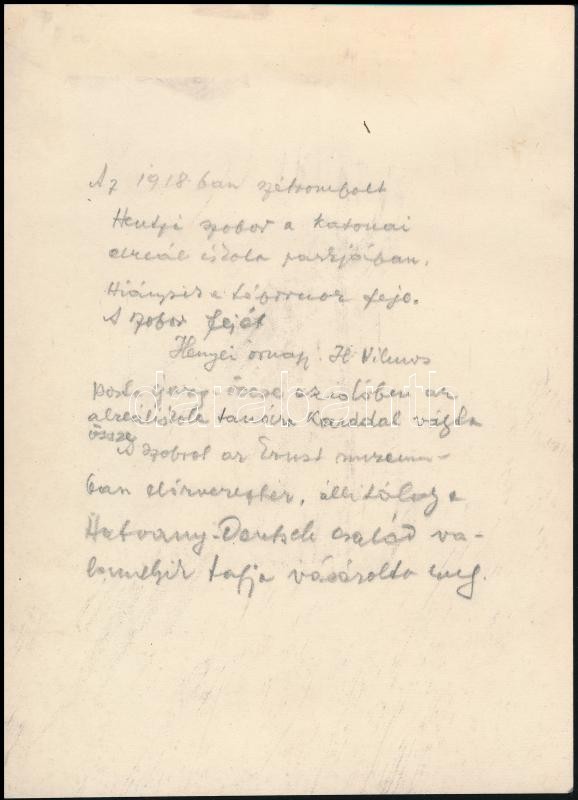 Az 1918-ban szétrombolt
Hentzi szobor a katonai
alreál iskola parkjában.
Hiányzik a tábornok feje.
A szobor fejét
Henyei őrnagy H. Vilmos
öccse az időben az
alreáliskola tanára karddal vágta
össze
A szobrot az Ernst muzeum-
ban elárverezték, állitólag a
Hatvany-Deutsch család va-
lamelyik tagja vásárolta meg.
darabanth